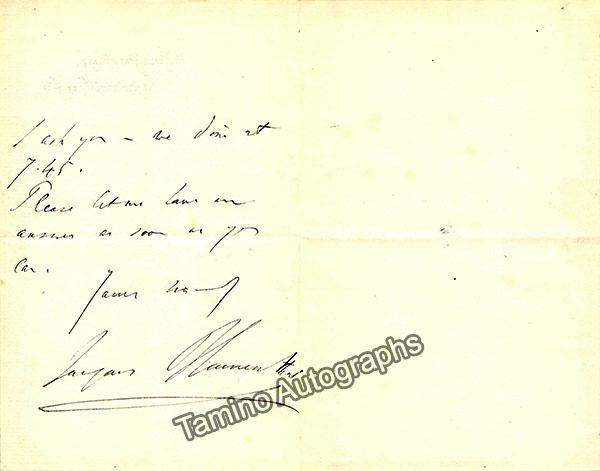 I ask you – we dine at
7.45.
Please let me have an
answer as soon as you
can.
Yours truly
Jacques Blumenthal
Tamino Autographs